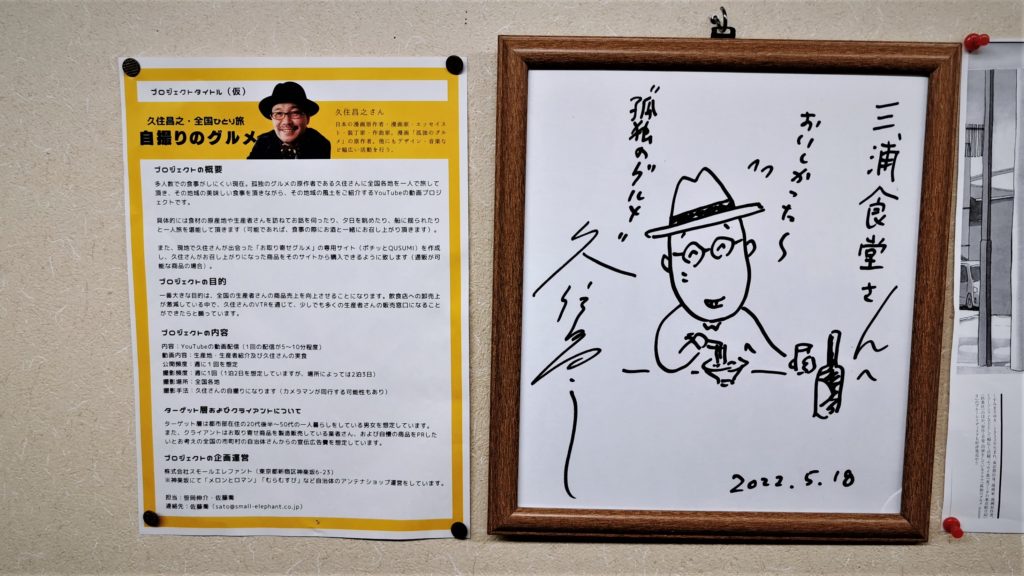 プロジェクトタイトル（仮）
久住昌之・全国ひとり旅
自撮りのグルメ
久住昌之さん
日本の漫画原作者・漫画家・エッセイス
ト・装丁家・作曲家。漫画「孤独のグル
メ」の原作者。他にもデザイン・音楽な
ど幅広い活動を行う。
プロジェクトの概要
多人数での食事がしにくい現在。孤独のグルメの原作者である久住さんに全国各地を一人で旅して
頂き、その地域の美味しい食事を頂きながら、その地域の風土をご紹介するYouTubeの動画プロジ
ェクトです。
具体的には食材の原産地や生産者さんを訪ねてお話を伺ったり、夕日を眺めたり、船に揺られたり
と一人旅を堪能して頂きます（可能であれば、食事の際にお酒と一緒にお召し上がり頂きます）。
また、現地で久住さんが出会った「お取り寄せグルメ」の専用サイト（ポチッとQUSUMI）を作成
し、久住さんがお召し上がりになった商品をそのサイトから購入できるように致します（通販が可
能な商品の場合）。
プロジェクトの目的
一番大きな目的は、全国の生産者さんの商品売上を向上させることになります。飲食店への卸売上
が激減している中で、久住さんのVTRを通じて、少しでも多くの生産者さんの販売窓口になること
ができたらと願っています。
プロジェクトの内容
内容：YouTubeの動画配信（1回の配信が5〜10分程度）
動画内容：生産地・生産者紹介及び久住さんの実食
公開頻度：週に1回を想定
撮影頻度：週に1回（1泊2日を想定していますが、場所によっては2泊3日）
撮影場所：全国各地
撮影手法：久住さんの自撮りになります（カメラマンが同行する可能性もあり）
ターゲット層およびクライアントについて
ターゲット層は都市部在住の20代後半〜50代の一人暮らしをしている男女を想定しています。
また、クライアントはお取り寄せ商品を製造販売している業者さん、および自慢の商品をPRした
いとお考えの全国の市町村の自治体さんからの宣伝広告費を想定しています。
プロジェクトの企画運営
株式会社スモールエレファント（東京都新宿区神楽坂6-23）
※神楽坂にて「メロンとロマン」「むらむすび」など自治体のアンテナショップ運営をしています。
担当：笹岡伸介・佐藤喬
連絡先：佐藤喬（sato@small-elephant.co.jp）
三浦食堂さんへ
おいしかった〜
"孤独のグルメ"
久住昌之
2022.5.18